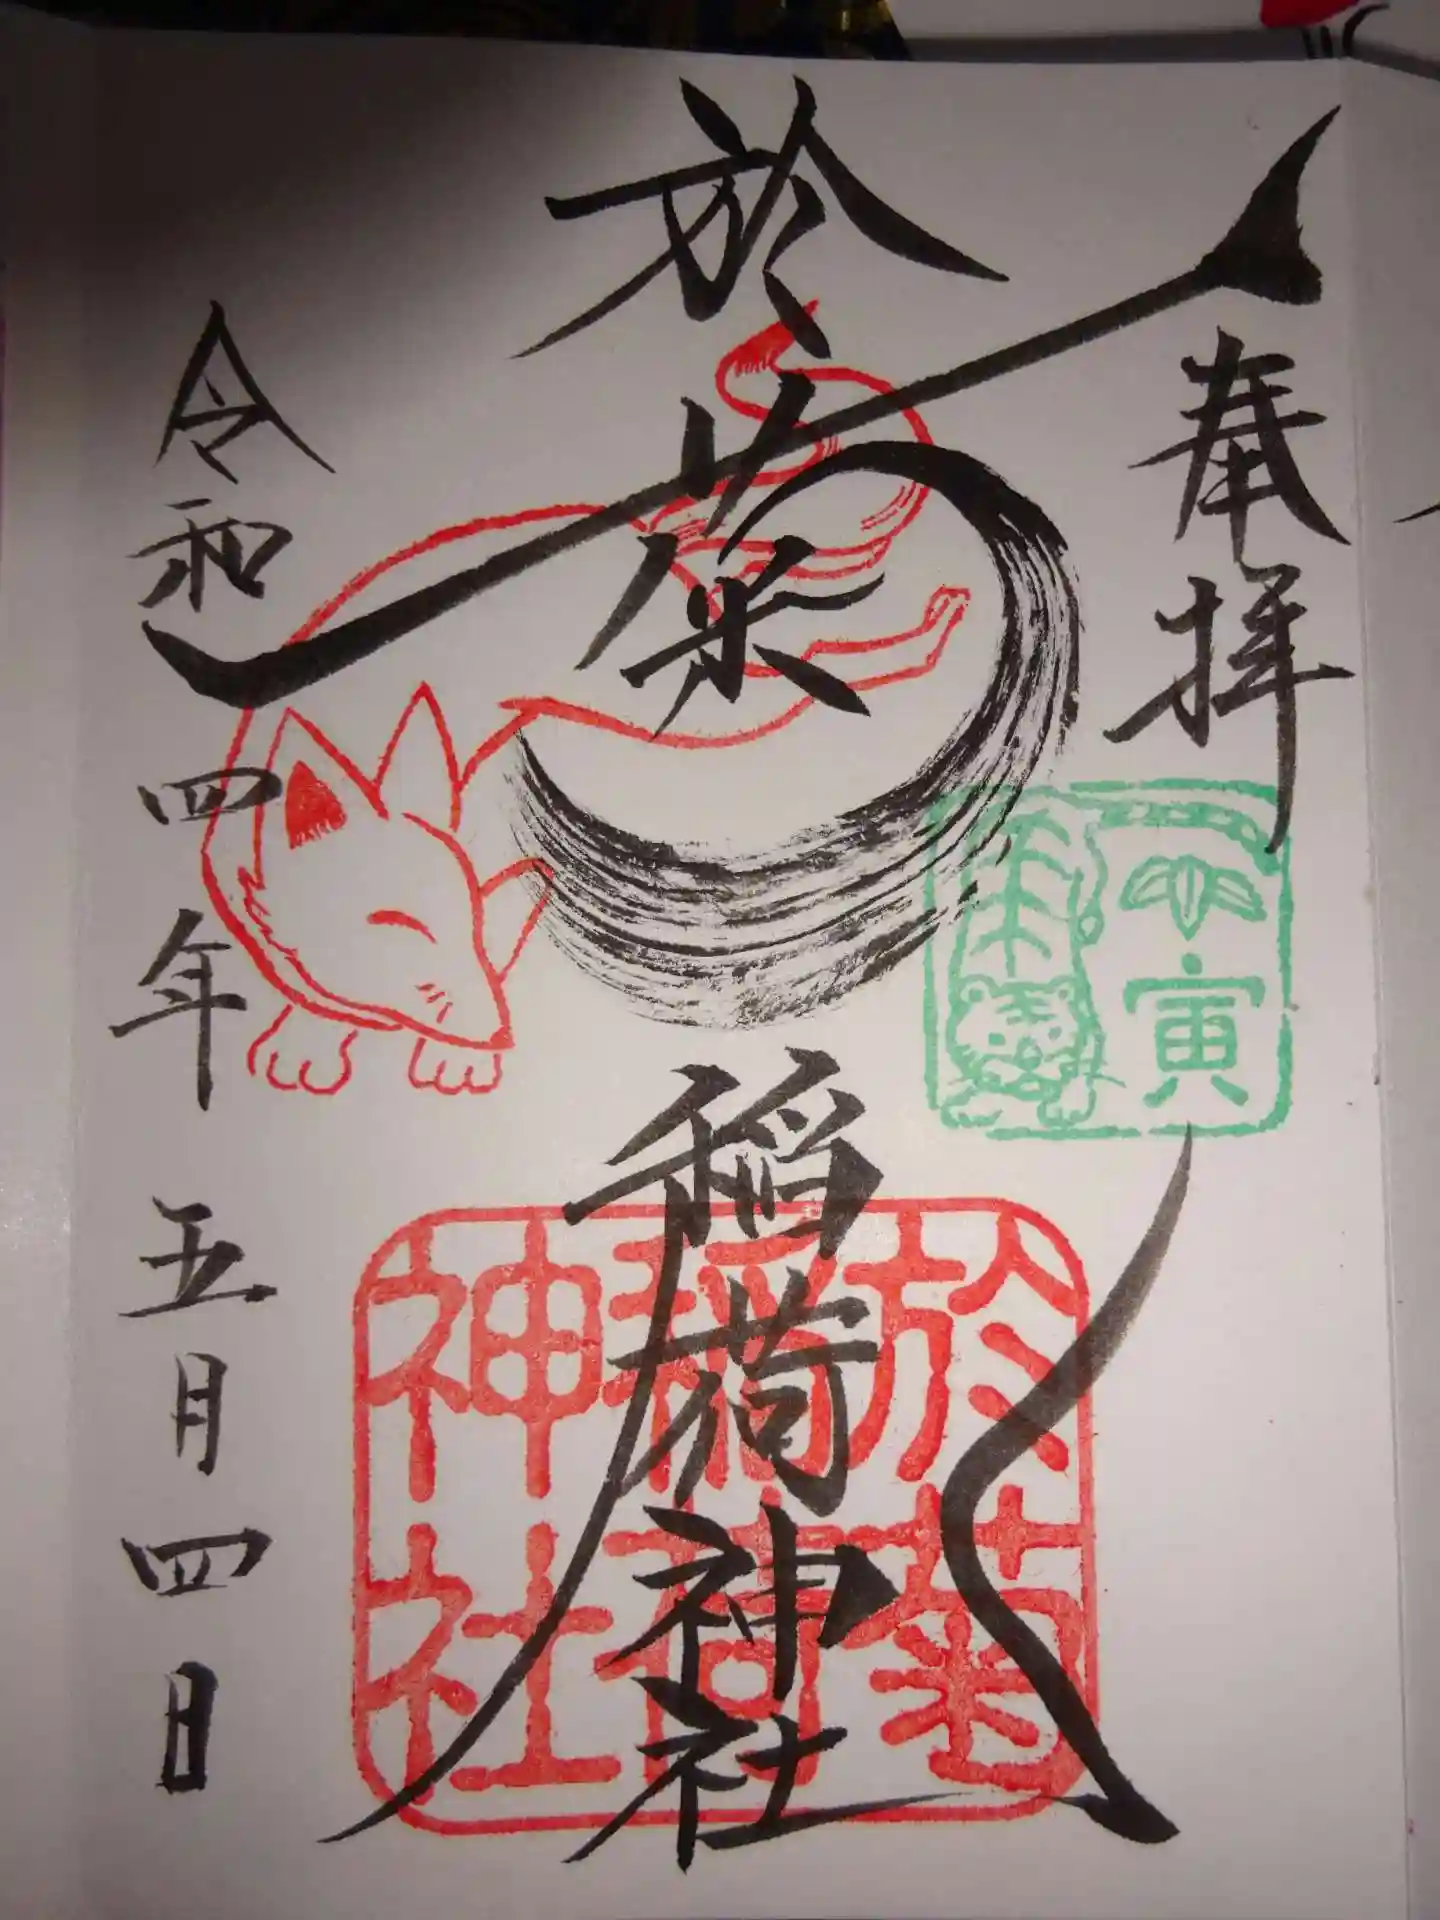 奉拝
寅
於菊稲荷神社
於菊
稲荷
神社
令和四年五月四日